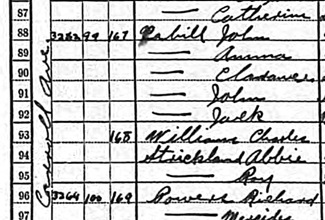 87 — Catherine
88 3262 99 167 Cahill John
89 — Anna
90 —
91 — John
92 — Jack
93 168 William Charles
94 Strickland Abbie
95 — Roy
96 3264 100 169 Powers Richard
97 —
Ave.